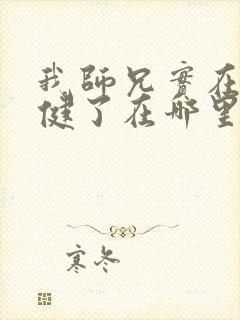 我師兄實在
健了在哪里
寒冬